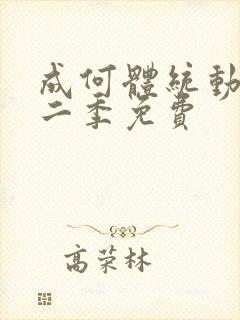 成何體統動
二季免費
高荣林